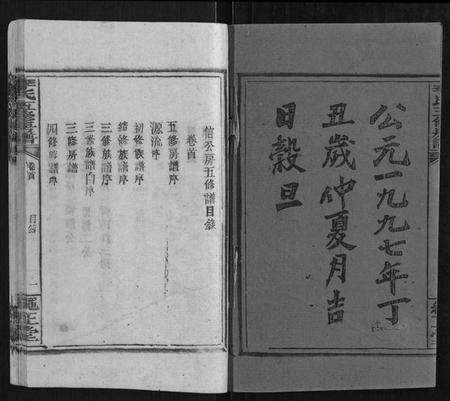 公元一九九七年丁
丑歲仲夏月吉
日穀旦
信公房五修譜目錄
卷首
五修房譜序
源流序
初修族譜序
續修族譜序
三修族譜序
三修族譜白序
三修房譜序
四修房譜序
卷首
目錄
一
繩正堂